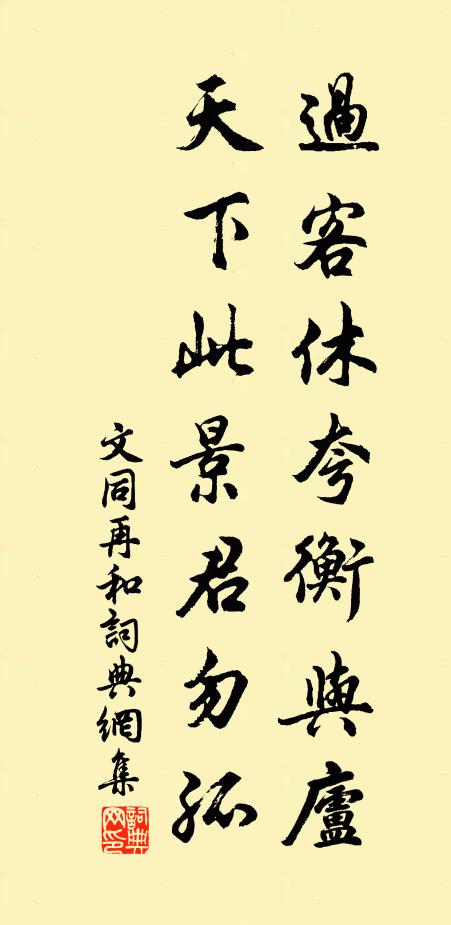 過客休夸衡與廬
天下此景君勿孤
文同再和詞典網集
詞典網印